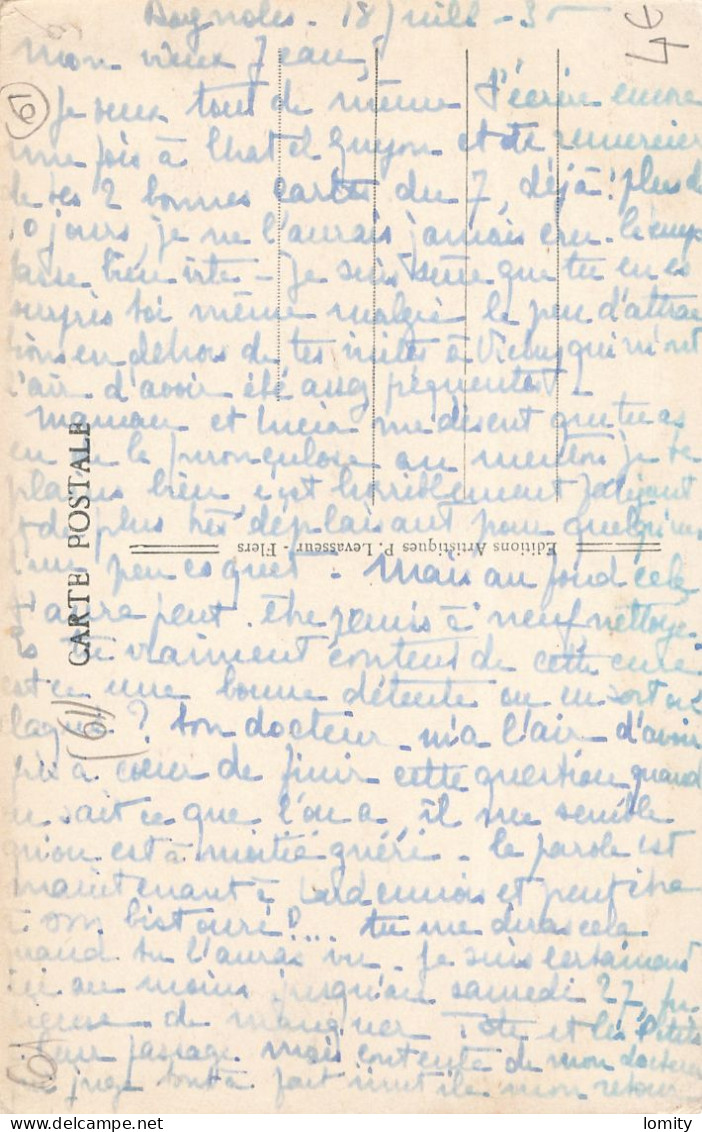 Bagnoles - 18 Juill - 35
4€
Mon vieux Jean,
(61)
Je veux tout de même t'écrire encore
une fois à Chatel Guyon et te remercier
de tes 2 bonnes cartes du 7, déjà! plus de
10 jours, je ne l'aurais jamais cru. le temps
passe bien vite - Je suis sûre que tu en es
surpris toi même malgré le peu d'attrac
tions en dehors de tes visites à Vichy qui m'ont
l'air d'avoir été assez fréquentes -
Maman et Lucia me disent que tu as
eu la furonculose au menton je te
plains bien c'est horriblement fatigant
et de plus très déplaisant pour quelqu'un
d'un peu coquet - Mais au fond cela
t'aura peut-être remis à neuf nettoyé
Es tu vraiment content de cette cure
est ce une bonne détente ou en sort on
? Ton docteur m'a l'air d'avoir
pris à coeur de finir cette question quand
on sait ce que l'on a, il me semble
qu'on est à moitié guéri - la parole est
maintenant à et peut être
à son bistouri? ... tu me diras cela
quand tu l'auras vu - Je suis certainement
ici au moins jusqu'au samedi 27,
de manquer Tote et les Petits
leur passage mais contente de mon docteur
je juge tout à fait inutile mon retour
CARTE POSTALE
Editions Artistiques P. Levasseur - Flers
(61)
61
lomity